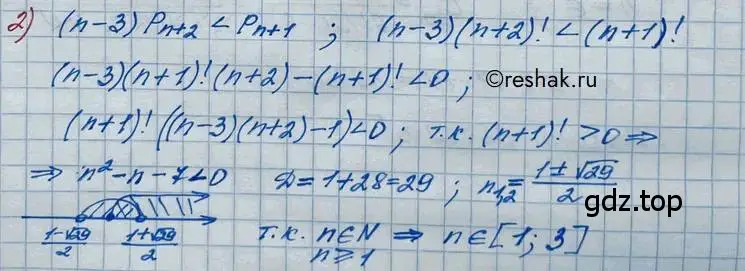 2) (n-3) Pₙ₊₂ < Pₙ₊₁ ; (n-3)(n+2)! < (n+1)!
(n-3)(n+1)!(n+2)-(n+1)! < 0 ;
©reshak.ru
(n+1)!((n-3)(n+2)-1)<0 ; т.к. (n+1)! >0 ⇒
⇒ n²-n-7<0 Д=1+28=29 ; n₁,₂ = (1±√29)/2
gdz.top
(1-√29)/2 (1+√29)/2 т.к. n∈N ⇒ n∈[1; 3]
n⩾1